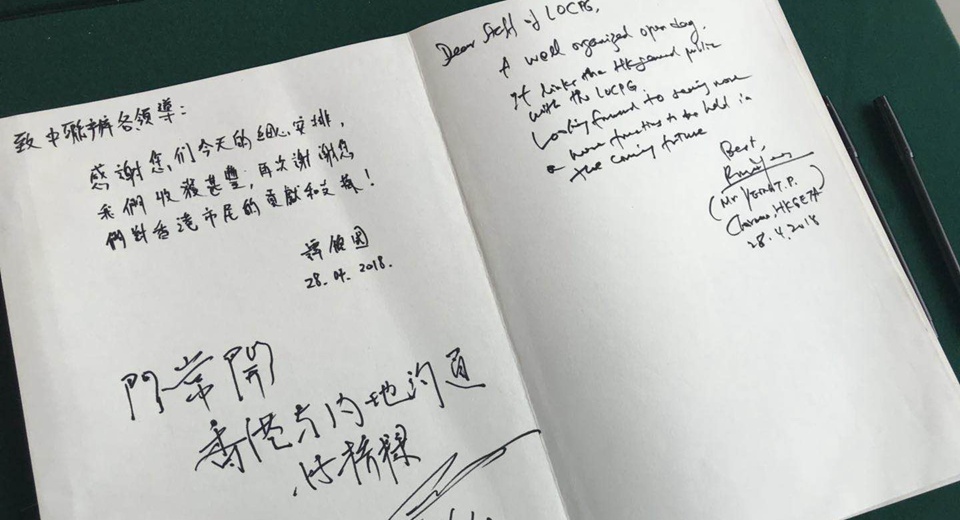 致中聯辦各領導：
感謝您们今天的細心安排，
我們收穫甚豐，再次謝謝您
們對香港市民的貢獻和支持！
28.04.2018.
門常開
香港与内地沟通
的桥樑
Dear Staff of LOCPG,
A well organized open day.
It links the HK general public
with the LOCPG.
Looking forward to seeing more
& more functions to be held in
the coming future
Best,
(Mr. T.P.
Chairman, HKGETA)
28.4.2018